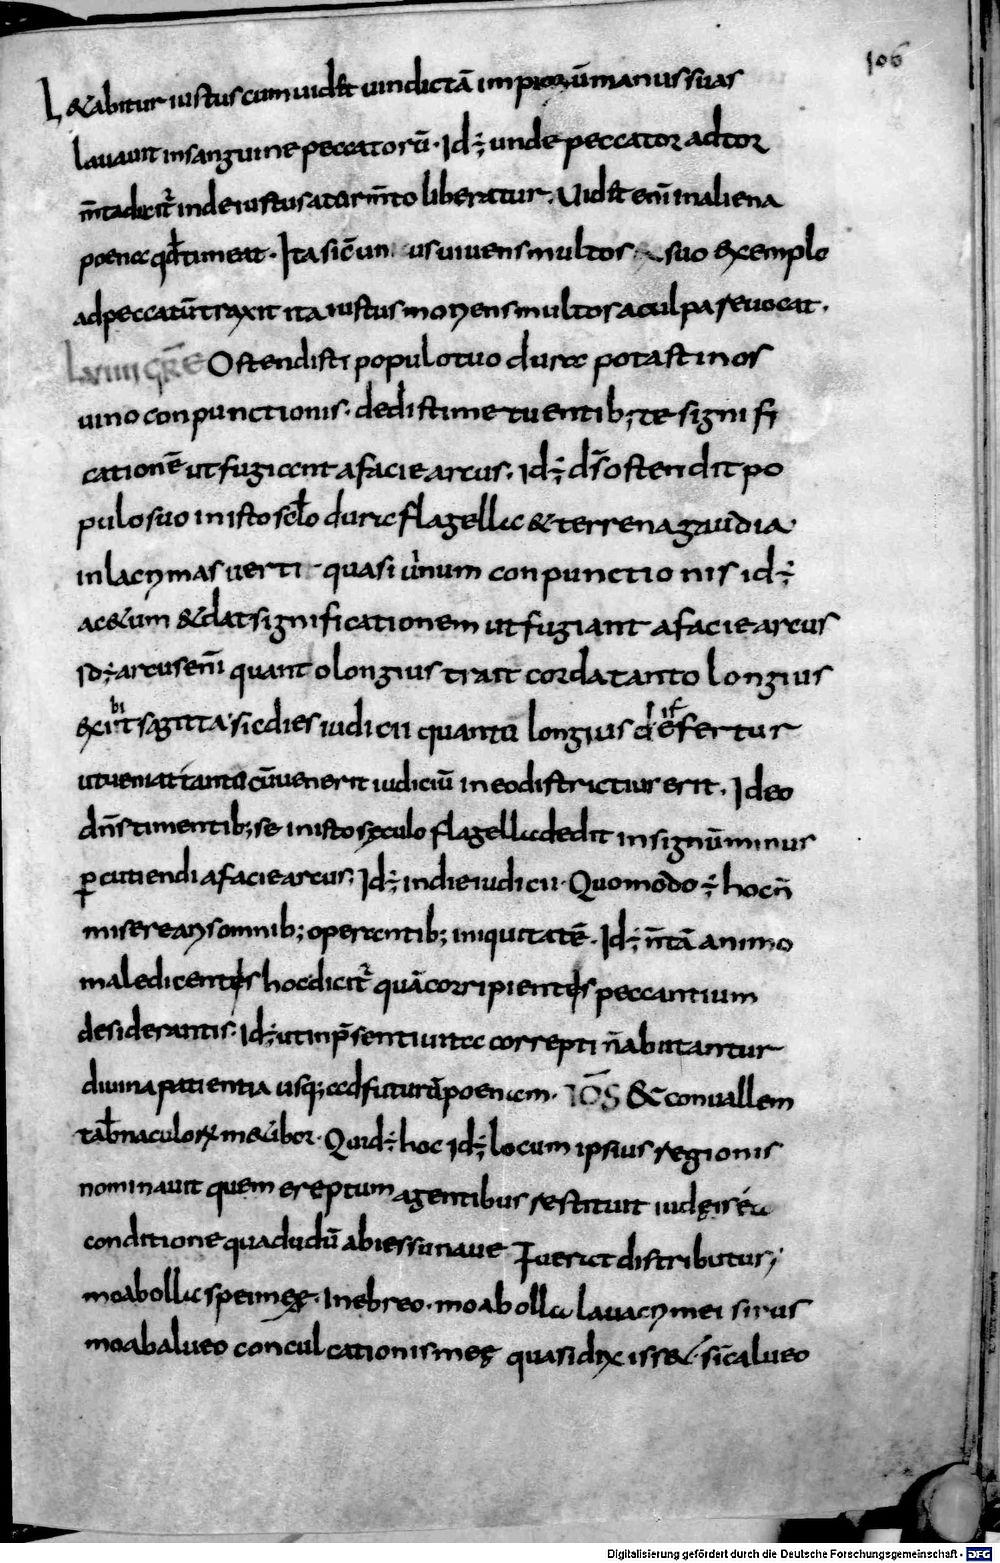 106
L&abitur iustus cum uider& uindictā impiorūmanus suas
lauauit insanguine peccatorū· Id÷; unde peccator adtor
m̄tadicit̄ inde iustus ator m̄to liberatur. Uider& eni inaliena
poena qd timeat· Ita sic̄ un us uiuens multos suo exemplo
adpeccatū traxit ita iustus moriens multos aculpa reuocat.
GRE Ostendisti populo tuo dura potasti nos
uino conpunctionis· dedisti metuentib; te signifi
cationē ut fugiant afacie arcus. Id÷; ds̄ ostendit po
pulo suo inisto sclo dura flagella & terrena gaudia
inlacrimas uerti· quasi uinum conpunctionis id÷;
ac&um &dat significationem ut fugiant afacie arcus
Id÷; arcus enī quanto longius trait corda tanto longius
exibit sagitta· sic dies iudicii quanto longius differtur
ut ueniat tanto cū uenerit iudiciū ineo districtius erit. Ideo
dn̄s timentib; se inisto sęculo flagella dedit insignū minus
percutiendi afacie arcus; Id÷; indie iudicii· Quomodo ÷; hoc n̄
miserearis omnib; operantib; iniquitatē. Id÷; n̄ tā animo
maledicentis hoc dicit̄ quā corripientis peccantium
desiderantis· Id÷; ut inp̄senti uita correpti n̄ abutantur
diuina patientia usq; adfuturā poenam. IŌS &conuallem
tabnaculorum m&ibor· Quid÷; hoc id÷; locum ipsius regionis
nominauit quem ereptum agentibus restituit iudęis ea
conditione qua dudū abiessu naue Fuerat distributus;
moabolla spei meę· Inebreo· moab olla lauacri mei sirus
moab alueo conculcationis meę quasi dixiss&· sic̄ alueo
Digitalisierung gefördert durch die Deutsche Forschungsgemeinschaft · DFG